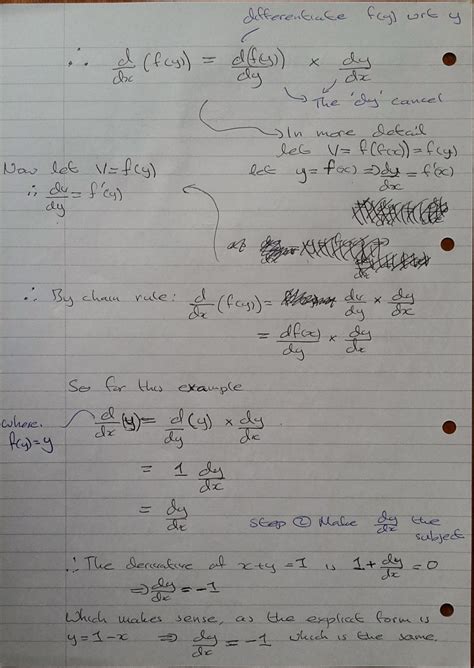 differentiate f(y) wrt y
∴ d/dx (f(y)) = d(f(y))/dy × dy/dx
The 'dy' cancel
In more detail
let V = f(f(x)) = f(y)
Now let V = f(y)
let y = f(x) ⇒ dy/dx = f'(x)
∴ dv/dy = f'(y)
∴ By chain rule: d/dx (f(y)) = dv/dy × dy/dx
= df(x)/dy × dy/dx
So for this example
where f(y) = y
d/dx (y) = d/dy (y) × dy/dx
= 1 dy/dx
= dy/dx
Step ② Make dy/dx the subject
∴ The derivative of x+y=1 is 1 + dy/dx = 0
⇒ dy/dx = -1
Which makes sense, as the explicit form is
y = 1-x ⇒ dy/dx = -1 which is the same.